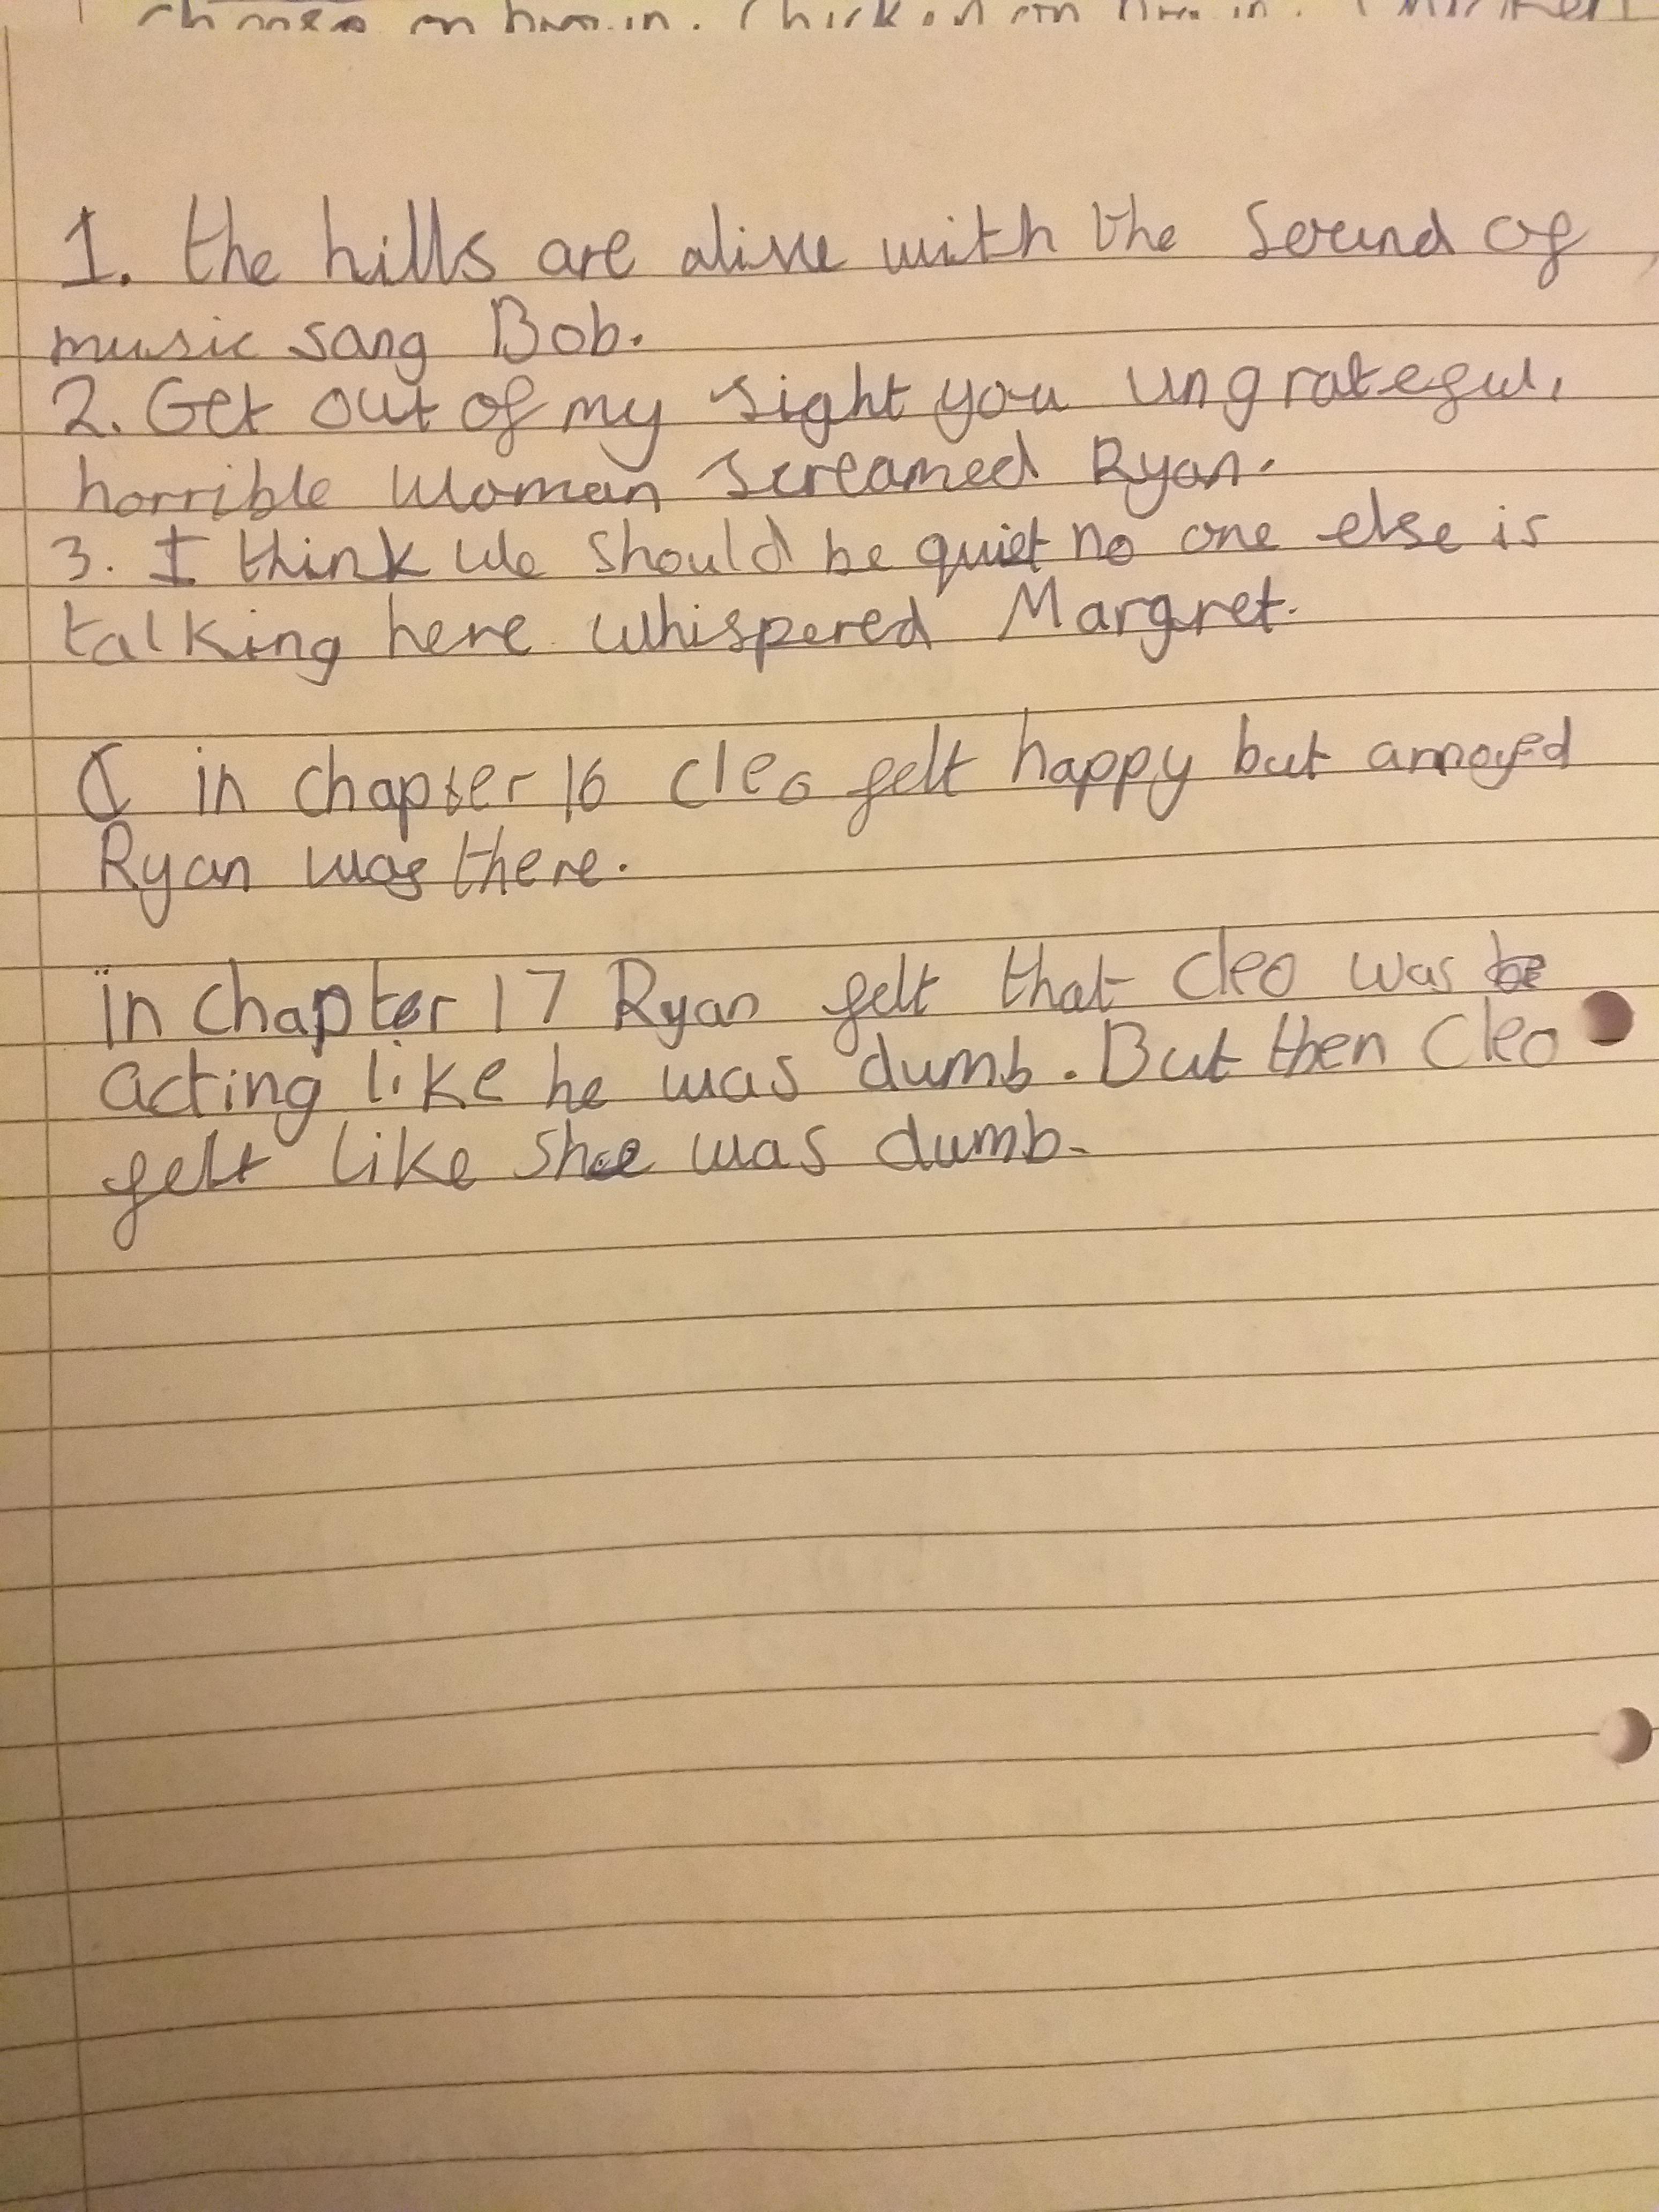 1. the hills are alive with the Sound of
music sang Bob.
2. Get out of my sight you ungrateful,
horrible woman screamed Ryan.
3. I think we should be quiet no one else is
talking here whispered Margret.
in chapter 16 Cleo felt happy but annoyed
Ryan was there.
in chapter 17 Ryan felt that Cleo was be
acting like he was dumb. But then Cleo
felt like she was dumb.